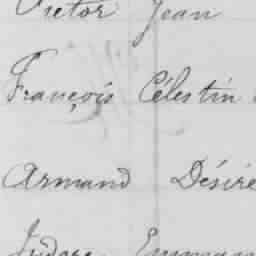 Victor Jean
François Célestin
Armand Désiré
Isidore Emman